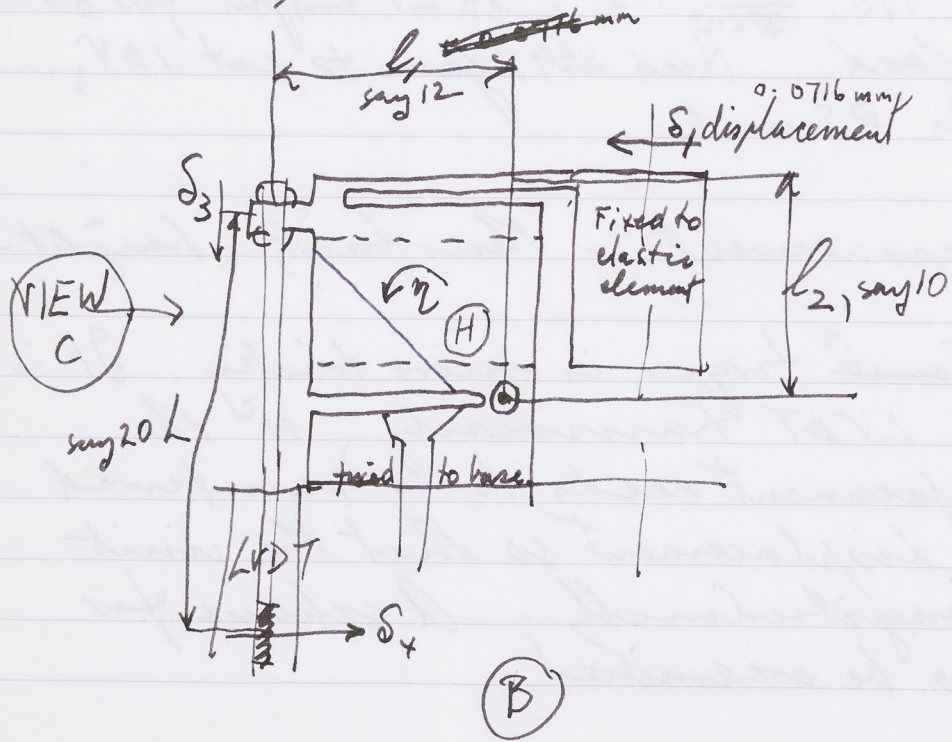 l₁ = 0.0716 mm
say 12
0.0716 mm
δ₁ displacement
δ₃
Fixed to
elastic
element
l₂, say 10
VIEW
C
η
H
say 20 L
fixed to base
LVDT
δ₄
B